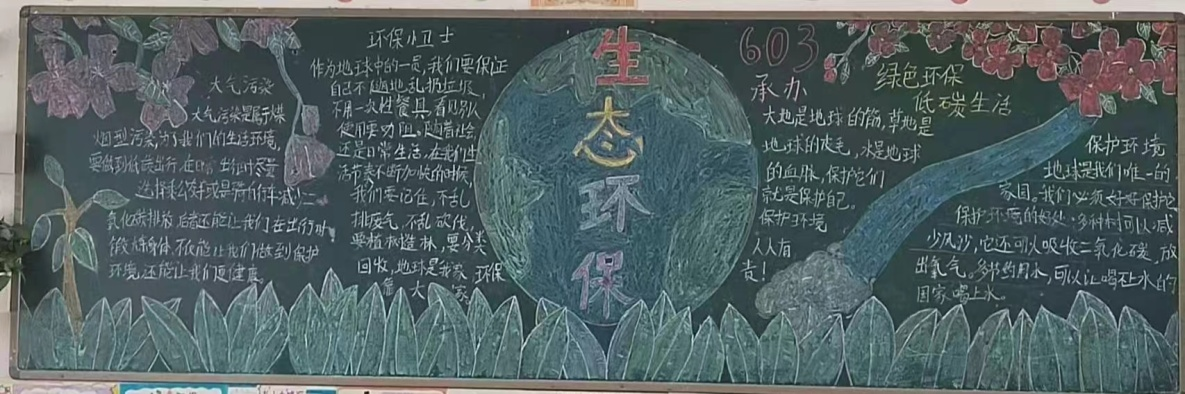 大气污染
大气污染是属于煤
烟型污染,为了我们的生活环境,
要做到低碳出行,在日常出行时尽量
选择乘公交车或是骑行车减少二
氧化碳排放,后者还能让我们在出行时
锻炼身体,不仅能让我们做到保护
环境,还能让我们更健康。
环保小卫士
作为地球中的一员,我们要保证
自己不随地乱扔垃圾,
不用一次性餐具,看见别人
使用要劝阻。随着社会
还是日常生活,在我们生
活节奏不断加快的时候,
我们要记住,不乱
排废气,不乱砍伐,
要植树造林,要分类
回收,地球是我家,环保
靠大家
生态环保
603
承办
大地是地球的筋,草地是
地球的皮毛,水是地球
的血脉,保护它们
就是保护自己。
保护环境
人人有
责!
绿色环保
低碳生活
保护环境
地球是我们唯一的
家园。我们必须好好保护它
保护环境的好处:多种树可以减
少风沙,它还可以吸收二氧化碳,放
出氧气。多节约用水,可以让喝不上水的
国家喝上水。